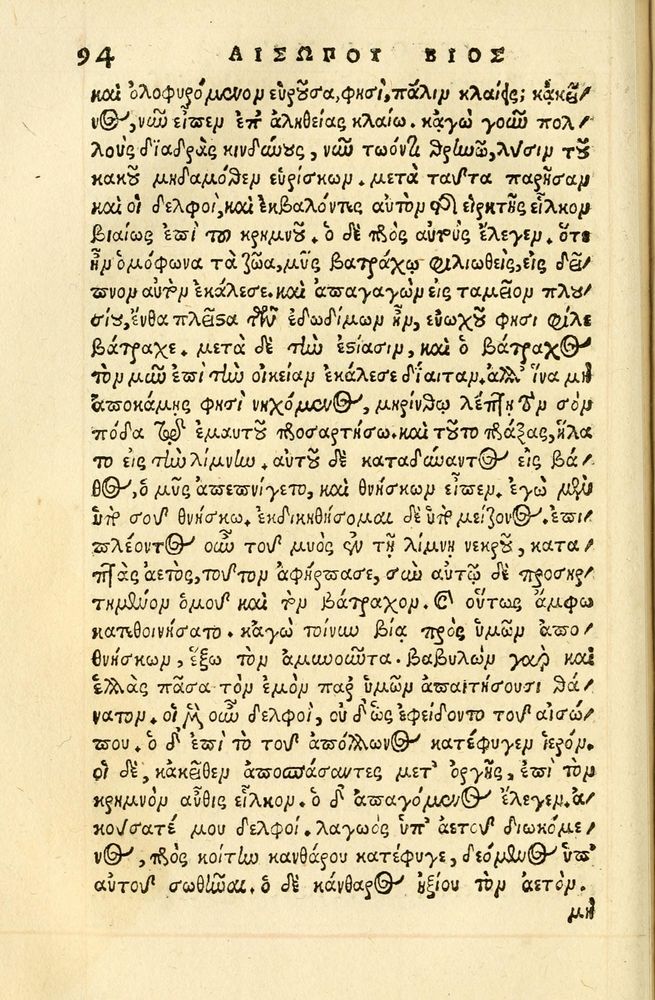 94 ΑΙΣΩΠΟΥ ΒΙΟΣ
καὶ ὀλοφυρόμενον εὑροῦσα, φησὶ, πάλιν κλαίεις; κἀκεῖ-
νος, νῦν εἶπεν ἐπ' ἀληθείας κλαίω. κἀγὼ γοῦν πολ-
λοὺς διαδρὰς κινδύνους, νῦν τῶν θρηνῶ, λύσιν τοῦ
κακοῦ μηδαμόθεν εὑρίσκων. μετὰ ταῦτα παρῆσαν
καὶ οἱ δελφοὶ, καὶ ἐκβαλόντες αὐτὸν τῆς εἰρκτῆς εἷλκον
βιαίως ἐπὶ τοῦ κρημνοῦ. ὁ δὲ πρὸς αὐτοὺς ἔλεγεν. ὅτε
ἦν ὁμόφωνα τὰ ζῶα, μῦς βατράχῳ φιλιωθεὶς, εἰς δεῖ-
πνον αὐτὸν ἐκάλεσε. καὶ ἀπαγαγὼν εἰς ταμεῖον πλου-
σίου, ἔνθα πλεῖστα τῶν ἐδωδίμων ἦν, εὐωχοῦ φησι φίλε
βάτραχε. μετὰ δὲ τὴν ἑστίασιν, καὶ ὁ βάτραχος
τὸν μῦν ἐπὶ τὴν οἰκείαν ἐκάλεσε δίαιταν. ἀλλ' ἵνα μὴ
ἀποκάμῃς φησὶ νηχόμενος, μηρίνθῳ λεπτῇ τὸν σὸν
πόδα τῷ ἐμαυτοῦ προσαρτήσω. καὶ τοῦτο πράξας, ἥλα-
το εἰς τὴν λίμνην. αὐτοῦ δὲ καταδύναντος εἰς βά-
θος, ὁ μῦς ἀπεπνίγετο, καὶ θνήσκων εἶπεν. ἐγὼ μὲν
ὑπὸ σοῦ θνήσκω. ἐκδικηθήσομαι δὲ ὑπὸ μείζονος. ἐπι-
πλέοντος οὖν τοῦ μυὸς ἐν τῇ λίμνῃ νεκροῦ, κατα-
πτὰς ἀετὸς, τοῦτον ἀφήρπασε, σὺν αὐτῷ δὲ προσηρ-
τημένον ὁμοῦ καὶ τὸν βάτραχον. καὶ οὕτως ἄμφω
κατεθοινήσατο. κἀγὼ τοίνυν βίᾳ πρὸς ὑμῶν ἀπο-
θνήσκων, ἕξω τὸν ἀμυνοῦντα. βαβυλὼν γὰρ καὶ
ἑλλὰς πᾶσα τὸν ἐμὸν παρ' ὑμῶν ἀπαιτήσουσι θά-
νατον. οἱ μὲν οὖν δελφοὶ, οὐδ' ὣς ἐφείδοντο τοῦ αἰσώ-
που. ὁ δ' ἐπὶ τὸ τοῦ ἀπόλλωνος κατέφυγεν ἱερόν.
οἱ δὲ, κἀκεῖθεν ἀποσπάσαντες μετ' ὀργῆς, ἐπὶ τὸν
κρημνὸν αὖθις εἷλκον. ὁ δ' ἀπαγόμενος ἔλεγεν. ἀ-
κούσατέ μου δελφοί. λαγωὸς ὑπ' ἀετοῦ διωκόμε-
νος, πρὸς κοίτην κανθάρου κατέφυγε, δεόμενος ὑπ'
αὐτοῦ σωθῆναι. ὁ δὲ κάνθαρος ἠξίου τὸν ἀετὸν.
μὴ